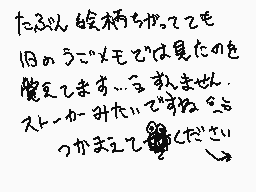 たぶん絵柄ちがってても
旧のうごメモでは見たのを
覚えてます…こう すみません.
ストーカーみたいですね
つかまえて ください